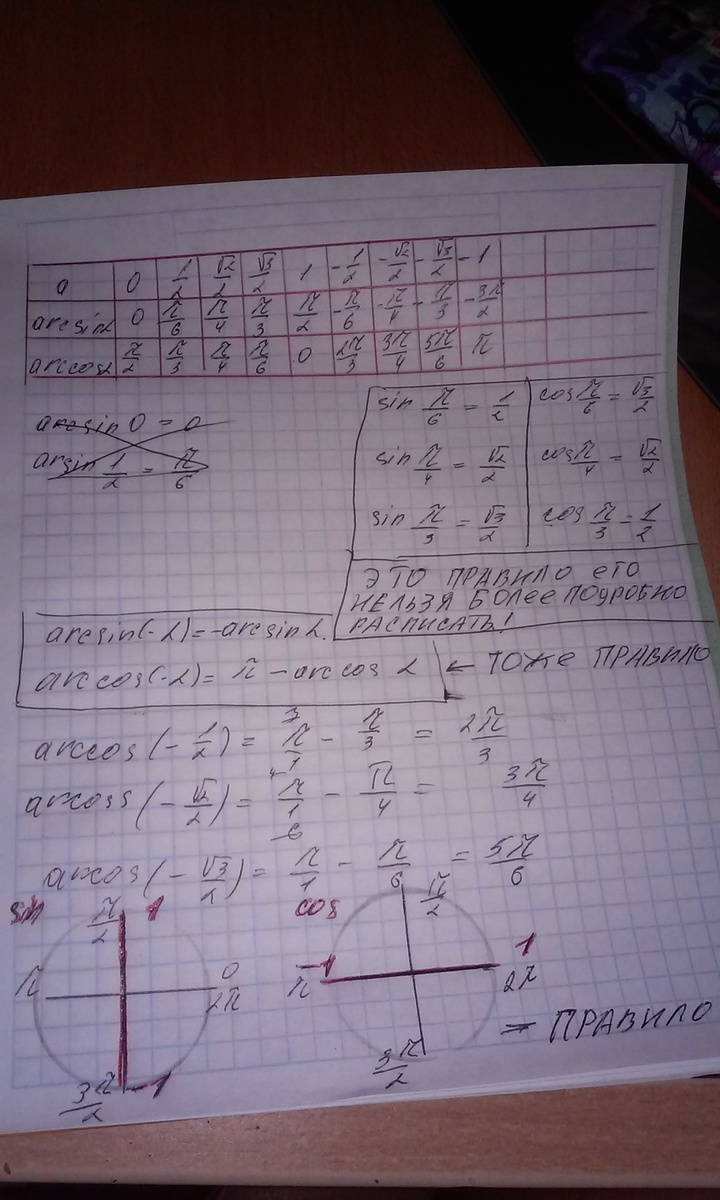 a 0 1/2 √2/2 √3/2 1 -1/2 -√2/2 -√3/2 -1
arcsin2 0 π/6 π/4 π/3 π/2 -π/6 -π/4 -π/3 -3π/2
arccos2 π/2 π/3 π/4 π/6 0 2π/3 3π/4 5π/6 π
arcsin 0 = 0
arsin 1/2 = π/6
sin π/6 = 1/2 cos π/6 = √3/2
sin π/4 = √2/2 cos π/4 = √2/2
sin π/3 = √3/2 cos π/3 = 1/2
ЭТО ПРАВИЛО ЕГО
НЕЛЬЗЯ БОЛЕЕ ПОДРОБНО
РАСПИСАТЬ!
arcsin(-2)=-arcsin2.
arccos(-2)= π - arccos 2 ← ТОЖЕ ПРАВИЛО
arccos(-1/2) = 3 π/1 - π/3 = 2π/3
arcoss(-√2/2) = 4 π/1 - π/4 = 3π/4
arcos(-√3/2) = 6 π/1 - π/6 = 5π/6
sin π/2 1
π 0
2π
3π/2 -1
cos π/2
-1 1
π 2π
3π/2
= ПРАВИЛО